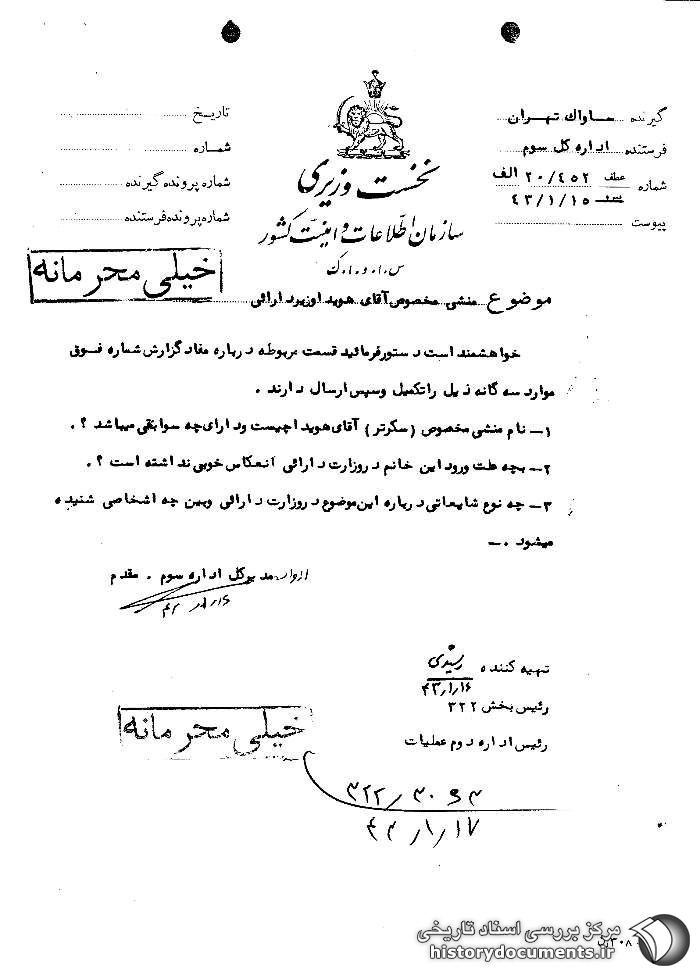 گیرنده ساواک تهران
فرستنده اداره کل سوم
شماره عطف ۲۰/۴۵۲ الف
۴۳/۱/۱۵
پیوست
تاریخ
شماره
شماره پرونده گیرنده
شماره پرونده فرستنده
نخست وزیری
سازمان اطلاعات و امنیت کشور
س.ا.و.ا.ک
خیلی محرمانه
موضوع منشی مخصوص آقای هویدا وزیر دارائی
خواهشمند است دستور فرمائید قسمت مربوطه درباره مفاد گزارش شماره فوق
موارد سه گانه ذیل را تکمیل وسپس ارسال دارند .
۱ـ نام منشی مخصوص (سکرتر) آقای هویدا چیست ودارای چه سوابقی میباشد ؟.
۲ـ بچه علت ورود این خانم در وزارت دارائی انعکاس خوبی نداشته است ؟.
۳ـ چه نوع شایعاتی درباره این موضوع در وزارت دارائی وبین چه اشخاصی شنیده
میشود .ـ
مدیرکل اداره سوم . مقدم
تهیه کننده رشیدی
۴۳/۱/۱۶
رئیس بخش ۳۲۲
رئیس اداره دوم عملیات
خیلی محرمانه
۳۲۲/۳۰۹۳
۴۳/۱/۱۷
مرکز بررسی اسناد تاریخی
historydocuments.ir